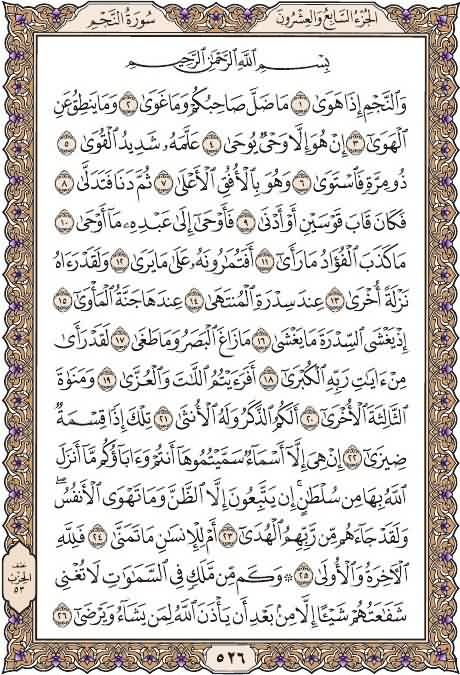 الجزء السابع والعشرون
سورة النجم
بِسْمِ اللَّهِ الرَّحْمَٰنِ الرَّحِيمِ
وَالنَّجْمِ إِذَا هَوَىٰ ١ مَا ضَلَّ صَاحِبُكُمْ وَمَا غَوَىٰ ٢ وَمَا يَنطِقُ عَنِ
الْهَوَىٰ ٣ إِنْ هُوَ إِلَّا وَحْيٌ يُوحَىٰ ٤ عَلَّمَهُۥ شَدِيدُ الْقُوَىٰ ٥
ذُو مِرَّةٍ فَاسْتَوَىٰ ٦ وَهُوَ بِالْأُفُقِ الْأَعْلَىٰ ٧ ثُمَّ دَنَا فَتَدَلَّىٰ ٨
فَكَانَ قَابَ قَوْسَيْنِ أَوْ أَدْنَىٰ ٩ فَأَوْحَىٰ إِلَىٰ عَبْدِهِۦ مَا أَوْحَىٰ ١٠
مَا كَذَبَ الْفُؤَادُ مَا رَأَىٰ ١١ أَفَتُمَارُونَهُۥ عَلَىٰ مَا يَرَىٰ ١٢ وَلَقَدْ رَءَاهُ
نَزْلَةً أُخْرَىٰ ١٣ عِندَ سِدْرَةِ الْمُنتَهَىٰ ١٤ عِندَهَا جَنَّةُ الْمَأْوَىٰ ١٥
إِذْ يَغْشَى السِّدْرَةَ مَا يَغْشَىٰ ١٦ مَا زَاغَ الْبَصَرُ وَمَا طَغَىٰ ١٧ لَقَدْ رَأَىٰ
مِنْ ءَايَاتِ رَبِّهِ الْكُبْرَىٰ ١٨ أَفَرَءَيْتُمُ اللَّاتَ وَالْعُزَّىٰ ١٩ وَمَنَوٰةَ
الثَّالِثَةَ الْأُخْرَىٰ ٢٠ أَلَكُمُ الذَّكَرُ وَلَهُ الْأُنثَىٰ ٢١ تِلْكَ إِذًا قِسْمَةٌ
ضِيزَىٰ ٢٢ إِنْ هِيَ إِلَّا أَسْمَاءٌ سَمَّيْتُمُوهَا أَنتُمْ وَءَابَاؤُكُم مَّا أَنزَلَ
اللَّهُ بِهَا مِن سُلْطَانٍ إِن يَتَّبِعُونَ إِلَّا الظَّنَّ وَمَا تَهْوَى الْأَنفُسُ ۖ
وَلَقَدْ جَاءَهُم مِّن رَّبِّهِمُ الْهُدَىٰ ٢٣ أَمْ لِلْإِنسَانِ مَا تَمَنَّىٰ ٢٤ فَلِلَّهِ
الْآخِرَةُ وَالْأُولَىٰ ٢٥ ۞ وَكَم مِّن مَّلَكٍ فِي السَّمَاوَاتِ لَا تُغْنِي
شَفَاعَتُهُمْ شَيْئًا إِلَّا مِن بَعْدِ أَن يَأْذَنَ اللَّهُ لِمَن يَشَاءُ وَيَرْضَىٰ ٢٦
نصف
الحزب
٥٣
٥٢٦